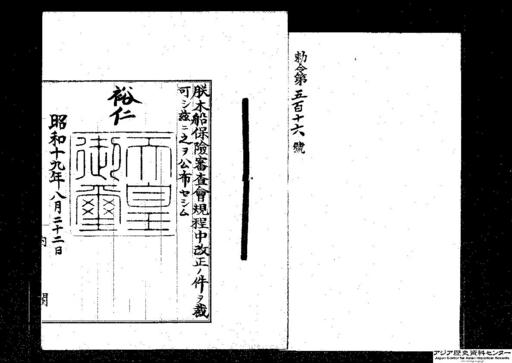 勅令第五百十六號
朕木船保險審査會規程中改正ノ件ヲ裁
可シ茲ニ之ヲ公布セシム
裕仁
天皇
御璽
昭和十九年八月二十二日
内閣
アジア歴史資料センター
Japan Center for Asian Historical Records